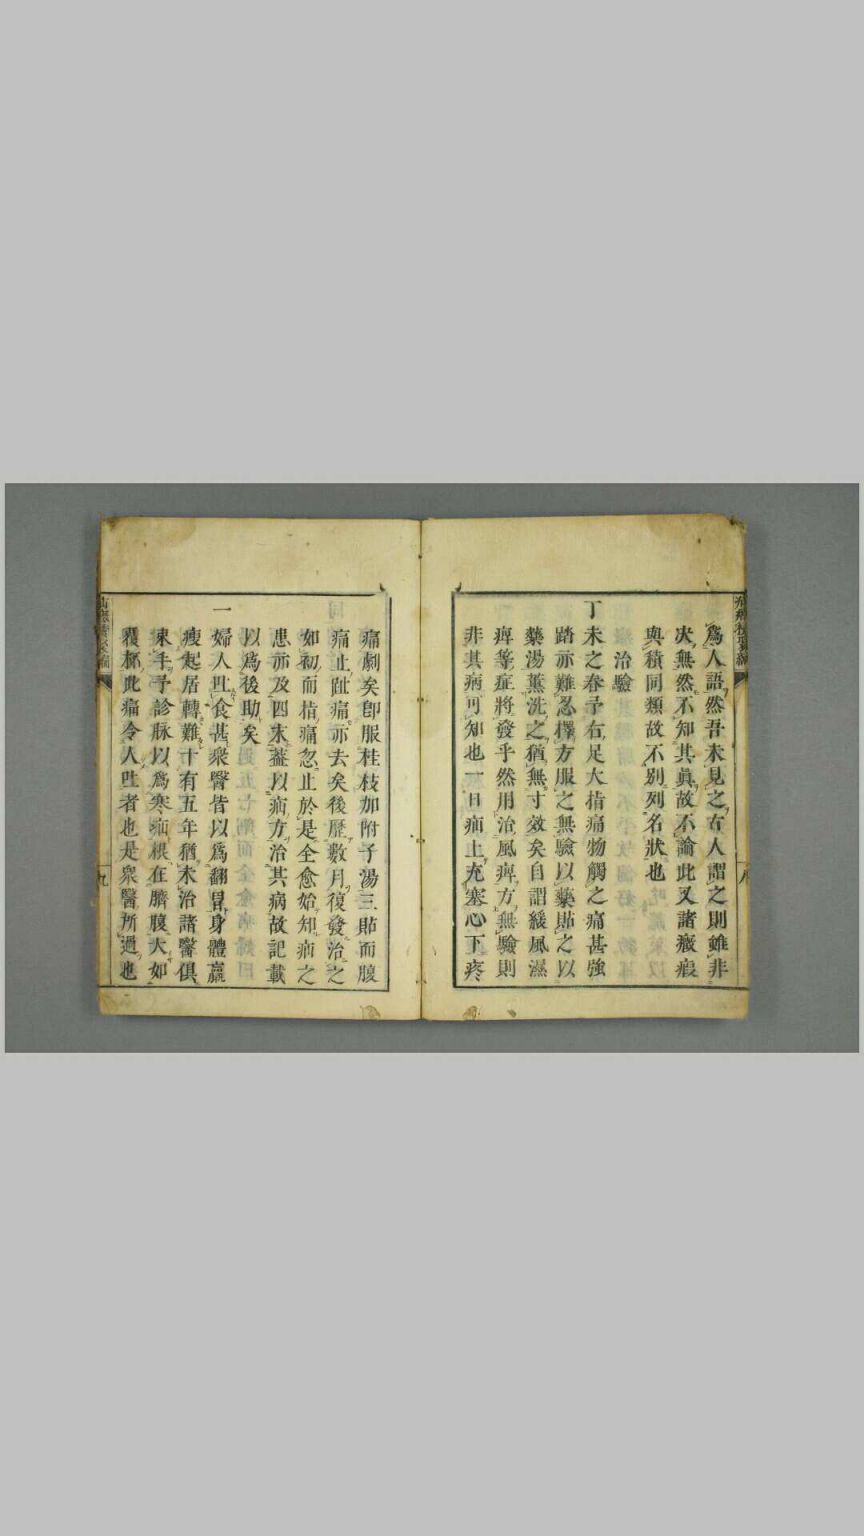 爲人語然吾未見之古人謂之則雖非
次無然不知其眞故不論此又諸癥瘕
與積同類故不別列名狀也
治驗
丁未之春予右足大指痛物觸之痛甚強
踏亦難忍擇方服之無驗以藥貼之以
藥湯薰洗之猶無寸效矣自謂緩風濕
痺等症將發乎然用治風痺方無驗則
非其病可知也一日疝上充塞心下疼
痛劇矣卽服桂枝加附子湯三貼而腹
痛止趾痛亦去矣後歷數月復發治之
如初而指痛忽止於是全愈始知疝之
患亦及四末蓋以疝方治其病故記載
以爲後助矣
一婦人吐食甚衆醫皆以爲翻胃身體羸
瘦起居轉難十有五年猶未治諸醫俱
束手予診脉以爲寒疝根在臍腹大如
覆杯此痛令人吐者也是衆醫所過也
九